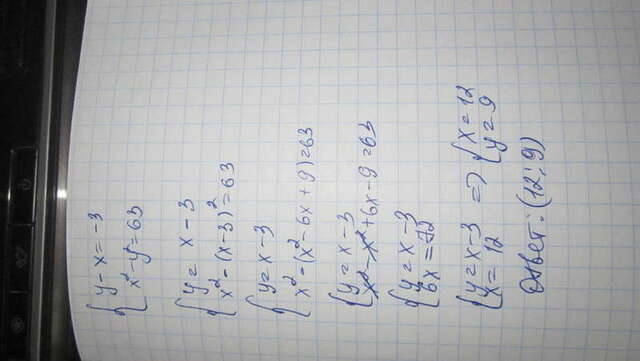 { y - x = -3
x² - y² = 63
{ y = x - 3
x² - (x - 3)² = 63
{ y = x - 3
x² - (x² - 6x + 9) = 63
{ y = x - 3
x² - x² + 6x - 9 = 63
{ y = x - 3
6x = 72
{ y = x - 3
x = 12 => { x = 12
y = 9
Ответ: (12; 9)